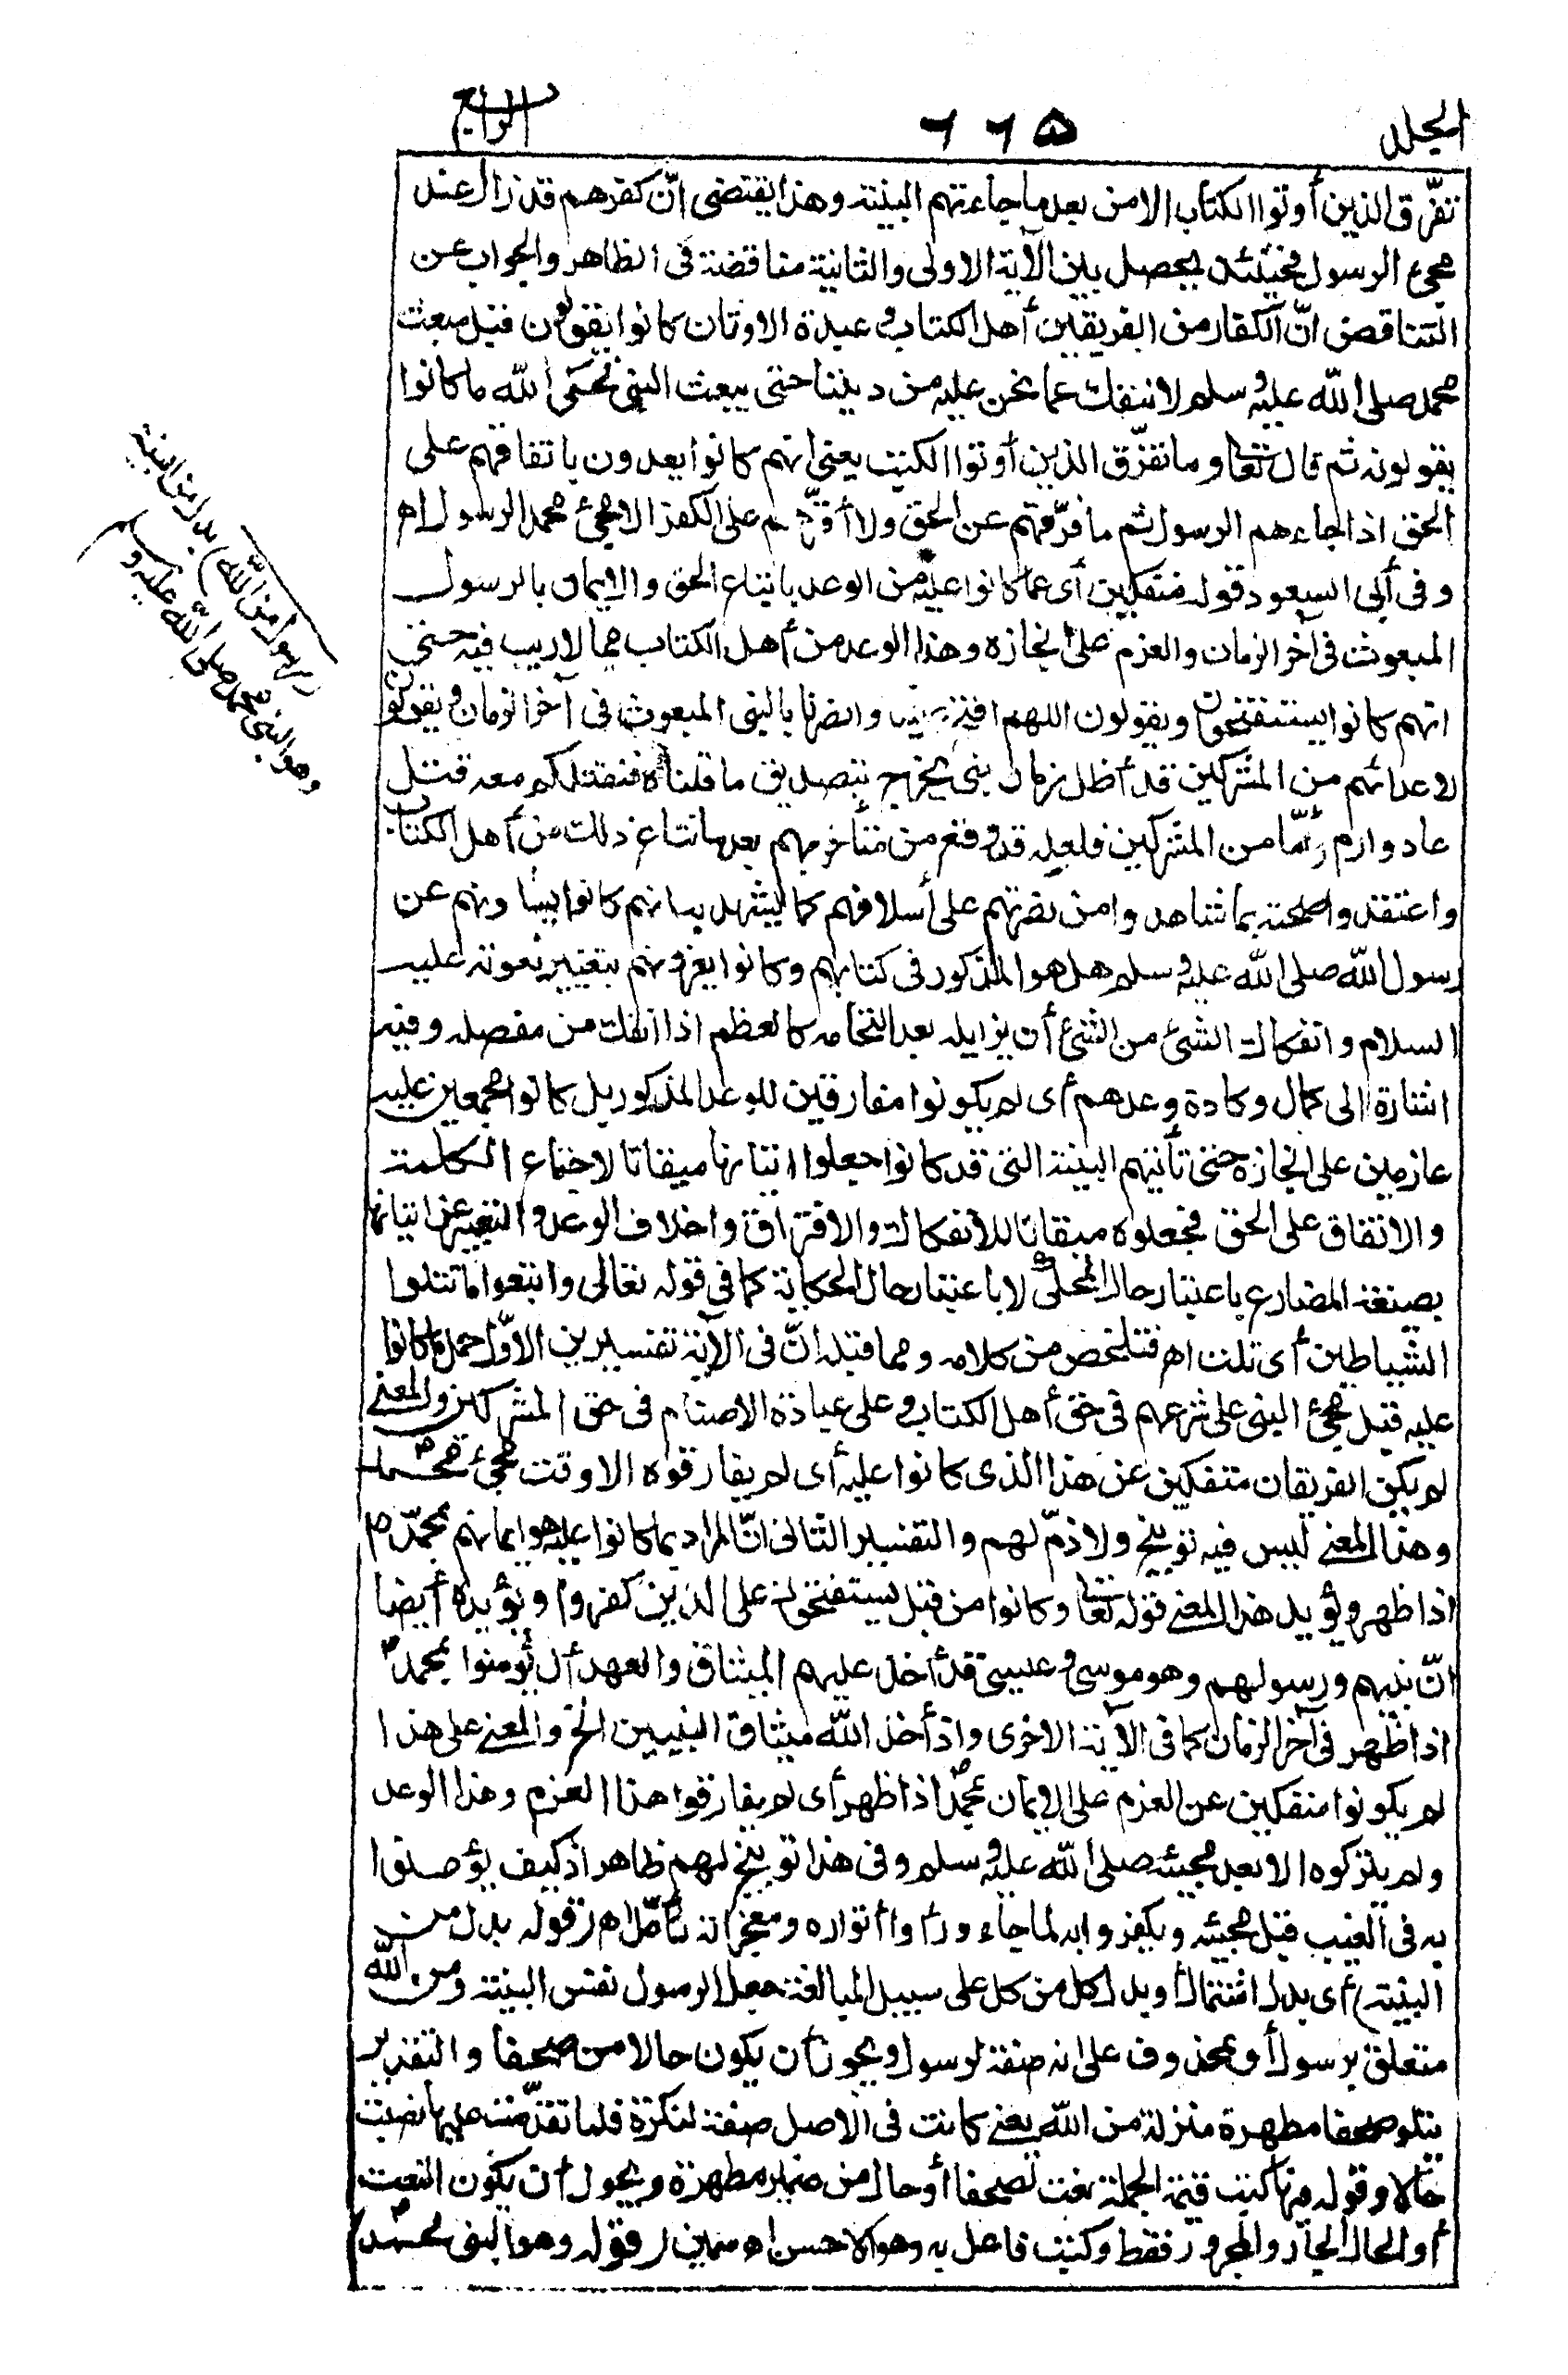 الجلد ٦٦٥ الرابع
تفرّق الذين أوتوا الكتاب الا من بعد ما جاءتهم البينة وهذا يقتضى انّ كفرهم قد زال عند
مجئ الرسول فحينئذ يحصل بين الآية الاولى والثانية مناقضة فى الظاهر والجواب عن
التناقض انّ الكفار من الفريقين أهل الكتاب و عبدة الاوثان كانوا يقولون قبل مبعث
محمد صلى الله عليه و سلم لا ننفك عما نحن عليه من ديننا حتى يبعث النبى فحكى الله ما كانوا
يقولونه ثم قال تعا وما تفرّق الذين أوتوا الكتب يعنى انهم كانوا يعدون باتفاقهم على
الحق اذا جاءهم الرسول ثم ما فرّقهم عن الحق ولا أقرّهم على الكفر الا مجئ محمد الرسول اه
وفى أبى السعود قوله منفكين أى عما كانوا عليه من الوعد باتباع الحق والايمان بالرسول
المبعوث فى آخر الزمان والعزم على انجازه وهذا الوعد من أهل الكتاب مما لا ريب فيه حتى
انهم كانوا يستفتحون ويقولون اللهم افتح علينا وانصرنا بالنبى المبعوث فى آخر الزمان و يقولون
لاعدائهم من المشركين قد أظل زمان نبى يخرج بتصديق ما قلناه فنقتلكم معه قتل
عاد وارم وأمّا من المشركين فلعله قد وقع من متأخريهم بعد ما شاع ذلك من أهل الكتاب
واعتقدوا صحته بما شاهدوا من نصرتهم على أسلافهم كما يشهد به انهم كانوا يسألونهم عن
رسول الله صلى الله عليه و سلم هل هو المذكور فى كتابهم وكانوا يغرونهم بتغيير نعوته عليه
السلام وانفكاك الشئ من الشئ أن يزايله بعد التحامه كالعظم اذا انفك من مفصله وفيه
اشارة الى كمال وكادة وعدهم أى لم يكونوا مفارقين للوعد المذكور بل كانوا مجمعين عليه
عازمين على انجازه حتى تأتيهم البينة التى قد كانوا جعلوا اتيانها ميقاتا لاجتماع الكلمة
والاتفاق على الحق فجعلوه ميقاتا للانفكاك والافتراق واخلاف الوعد و التعبير عن اتيانها
بصيغة المضارع باعتبار حال المحكى لا باعتبار حال الحكاية كما فى قوله تعالى واتبعوا ما تتلوا
الشياطين أى تلت اه فتلخص من كلامه ومما قبله انّ فى الآية تفسيرين الاوّل حمل ما كانوا
عليه قبل مجئ النبى على شرعهم فى حق أهل الكتاب و على عبادة الاصنام فى حق المشركين والمعنى
لم يكن الفريقان منفكين عن هذا الذى كانوا عليه أى لم يفارقوه الا وقت مجئ محمد ص
وهذا المعنى ليس فيه توبيخ ولا ذمّ لهم والتفسير الثانى انّ المراد بما كانوا عليه هو ايمانهم بمحمّد ص
اذا ظهر ويؤيد هذا المعنى قوله تعا وكانوا من قبل يستفتحون على الذين كفروا ويؤيده أيضا
انّ نبيهم ورسولهم وهو موسى و عيسى قد أخذ عليهم الميثاق والعهد أن يؤمنوا بمحمد ص
اذا ظهر فى آخر الزمان كما فى الآية الاخرى واذ أخذ الله ميثاق النبيين الخ والمعنى على هذا
لم يكونوا منفكين عن العزم على الايمان بمحمد ص اذا ظهر أى لم يفارقوا هذا العزم وهذا الوعد
ولم يتركوه الا بعد مجيئه صلى الله عليه و سلم وفى هذا توبيخ لهم ظاهر اذ كيف يؤمنوا
به فى الغيب قبل مجيئه ويكفروا به لما جاء ورأوا أنواره ومعجزاته تأمّل اه (قوله بدل من
البينة) أى بدل اشتمال أو بدل كل من كل على سبيل المبالغة جعل الرسول نفس البينة ومن الله
متعلق برسول أو بمحذوف على انه صفة لرسول ويجوز أن يكون حالا من صحفا والتقدير
يتلو صحفا مطهرة منزلة من الله يعنى كانت فى الاصل صفة لنكرة فلما تقدّمت عليها نصبت
حالا وقوله فيها كتب قيمة الجملة نعت لصحفا أو حال من ضمير مطهرة ويجوز أن يكون النعت
أو الحال الجارّ والمجرور فقط وكتب فاعل به وهو الاحسن اه سمين (قوله وهو النبى محمد ص)
رسول من الله) بدل من البينة
وهو النبى محمد صلى الله عليه و سلم